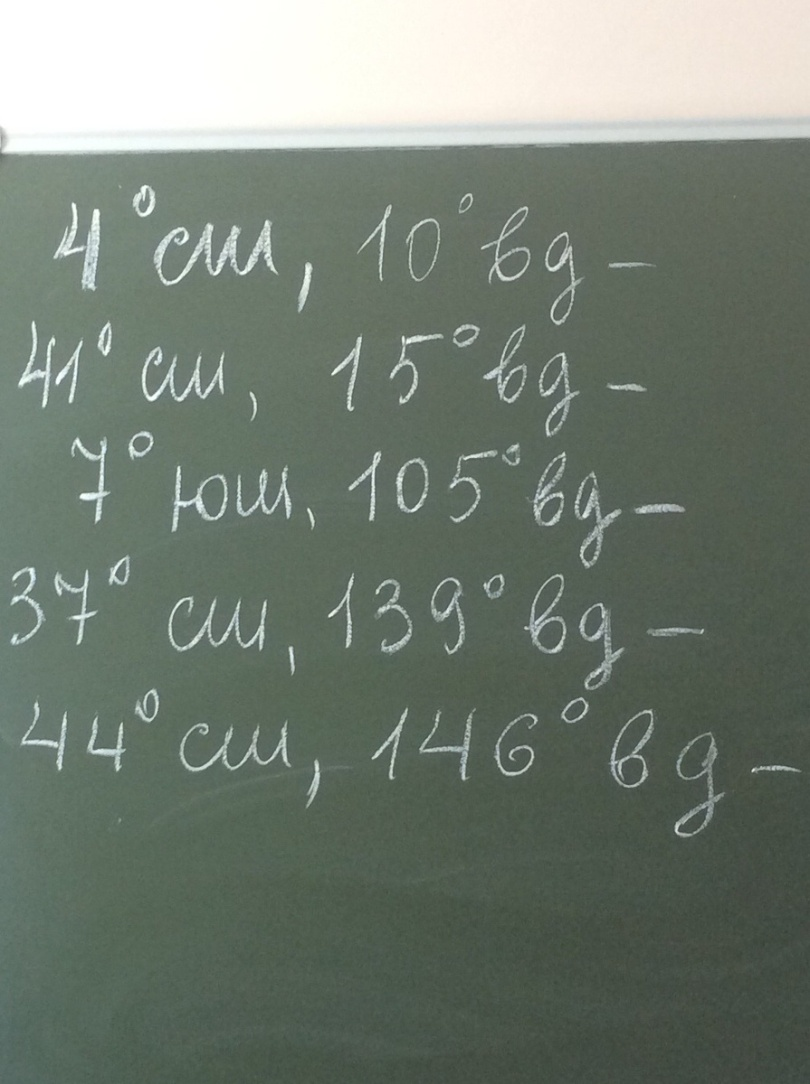 4° сш, 10° вд –
41° сш, 15° вд –
7° юш, 105° вд –
37° сш, 139° вд –
44° сш, 146° вд –